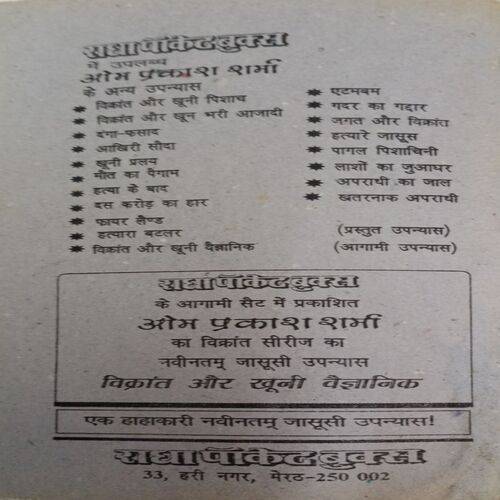 राधा पॉकेट बुक्स
में उपलब्ध
ओम प्रकाश शर्मा
के अन्य उपन्यास
✷ विक्रांत और खूनी पिशाच
✷ विक्रांत और खून भरी आजादी
✷ दंगा-फसाद
✷ आखिरी सौदा
✷ खूनी प्रलय
✷ मौत का पैगाम
✷ हत्या के बाद
✷ दस करोड़ का हार
✷ फायर लैण्ड
✷ हत्यारा बटलर
✷ विक्रांत और खूनी वैज्ञानिक
✷ एटमबम
✷ गदर का गद्दार
✷ जगत और विक्रांत
✷ हत्यारे जासूस
✷ पागल पिशाचिनी
✷ लाशों का जुआघर
✷ अपराधी का जाल
✷ खतरनाक अपराधी
(प्रस्तुत उपन्यास)
(आगामी उपन्यास)
राधा पॉकेट बुक्स
के आगामी सैट में प्रकाशित
ओम प्रकाश शर्मा
का विक्रांत सीरीज का
नवीनतम् जासूसी उपन्यास
विक्रांत और खूनी वैज्ञानिक
एक हाहाकारी नवीनतम् जासूसी उपन्यास!
राधा पॉकेट बुक्स
33, हरी नगर, मेरठ-250 002